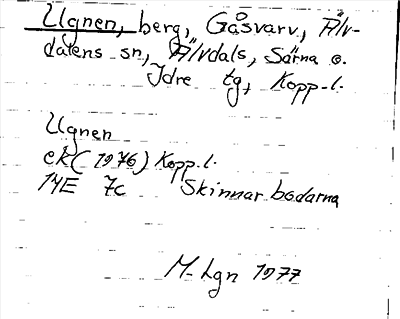 Ugnen, berg, Gåsvarv, Älv-
dalens sn, Älvdals, Särna o.
Idre tg, Kopp. l.
Ugnen
ek (1976) Kopp. l.
14E 7c Skinnarbodarna
M-Lgn 1977